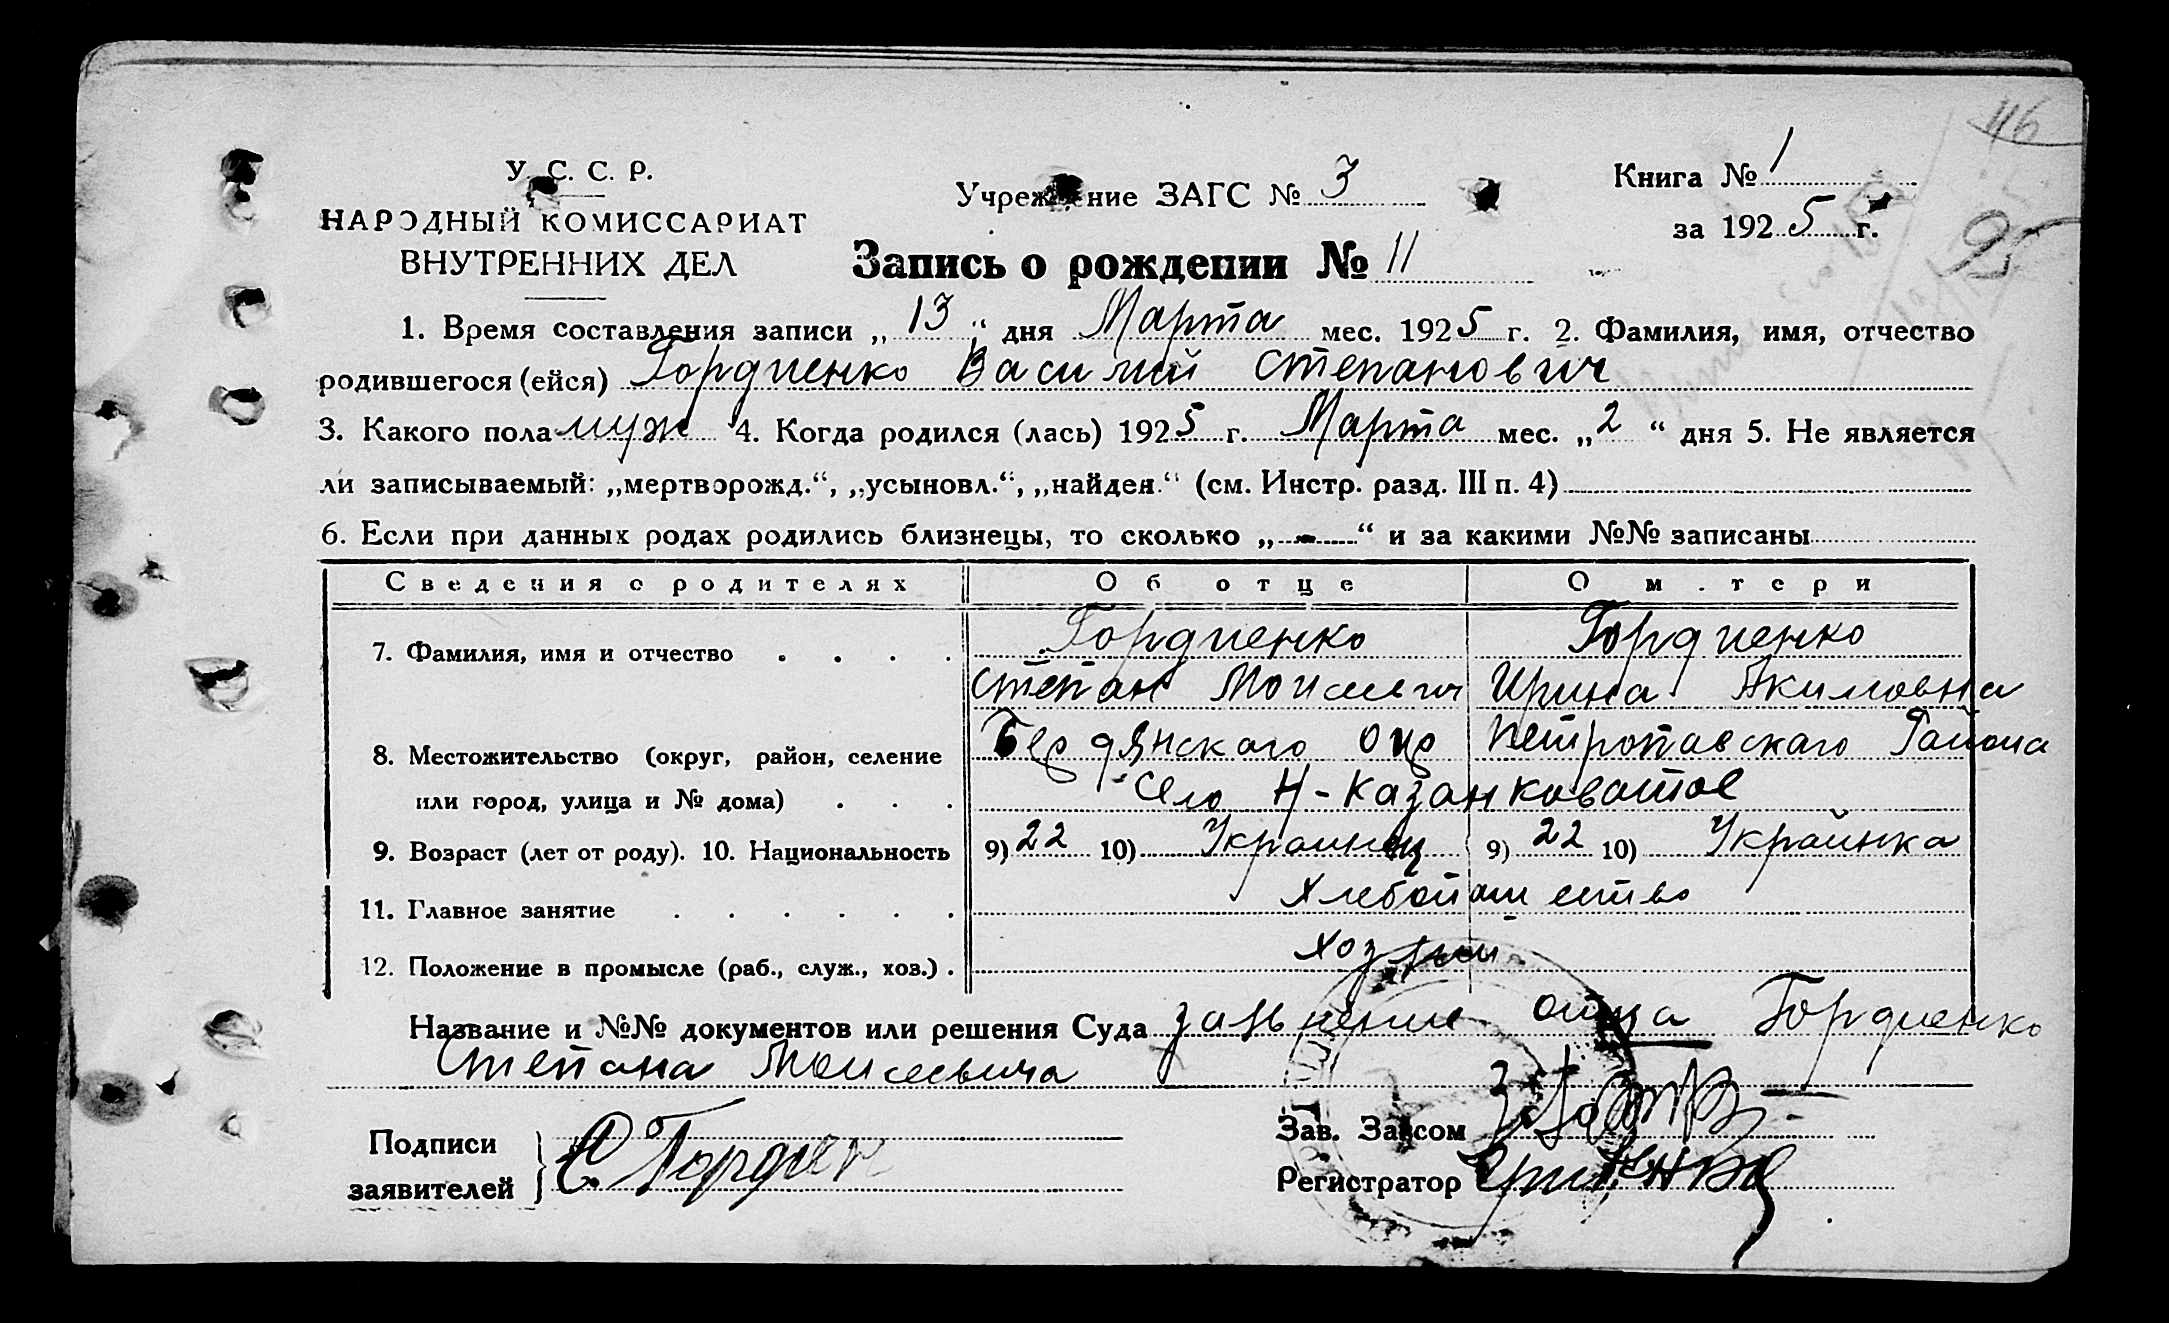 116
У. С. С. Р.
НАРОДНЫЙ КОМИССАРИАТ
ВНУТРЕННИХ ДЕЛ
Учреждение ЗАГС № 3
Книга № 1
за 1925 г.
95
Запись о рождении № 11
1. Время составления записи „13“ дня Марта мес. 1925 г. 2. Фамилия, имя, отчество
родившегося (ейся) Гордиенко Василий Степанович
3. Какого пола муж 4. Когда родился (лась) 1925 г. Марта мес. „2“ дня 5. Не является
ли записываемый: „мертворожд.“, „усыновл.“, „найден.“ (см. Инстр. разд. III п. 4)
6. Если при данных родах родились близнецы, то сколько „-“ и за какими №№ записаны
Сведения о родителях Об отце О м.тери
7. Фамилия, имя и отчество . . . . Гордиенко Гордиенко
Степан Моисеевич Ирина Акимовна
8. Местожительство (округ, район, селение Бердянского окр Петропавского Района
или город, улица и № дома) . . . Село Н-Казанковатое
9. Возраст (лет от роду). 10. Национальность 9) 22 10) Украинец 9) 22 10) Украинка
11. Главное занятие . . . . . . Хлебопашество
12. Положение в промысле (раб., служ., хоз.) . хозяин
Название и №№ документов или решения Суда заявление отца Гордиенко
Степана Моисеевича
Подписи
заявителей С. Гордиен
Зав. Загсом
Регистратор